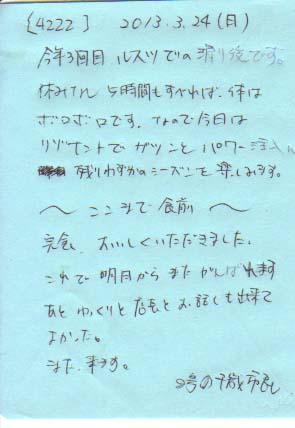 [4222] 2013.3.24(日)
今年3回目 ルスツでの滑り後です。
休みなし 5時間もすべれば、体は
ボロボロです。なので今日は
リゾナントでガツンとパワー注入
残りわずかのシーズンを楽しみます。
〜ここまで食前〜
完食、おいしくいただきました。
これで明日からまたがんばれます
あと ゆっくりと店長とお話しも出来て
よかった。
また、来ます。
2号の千歳市民